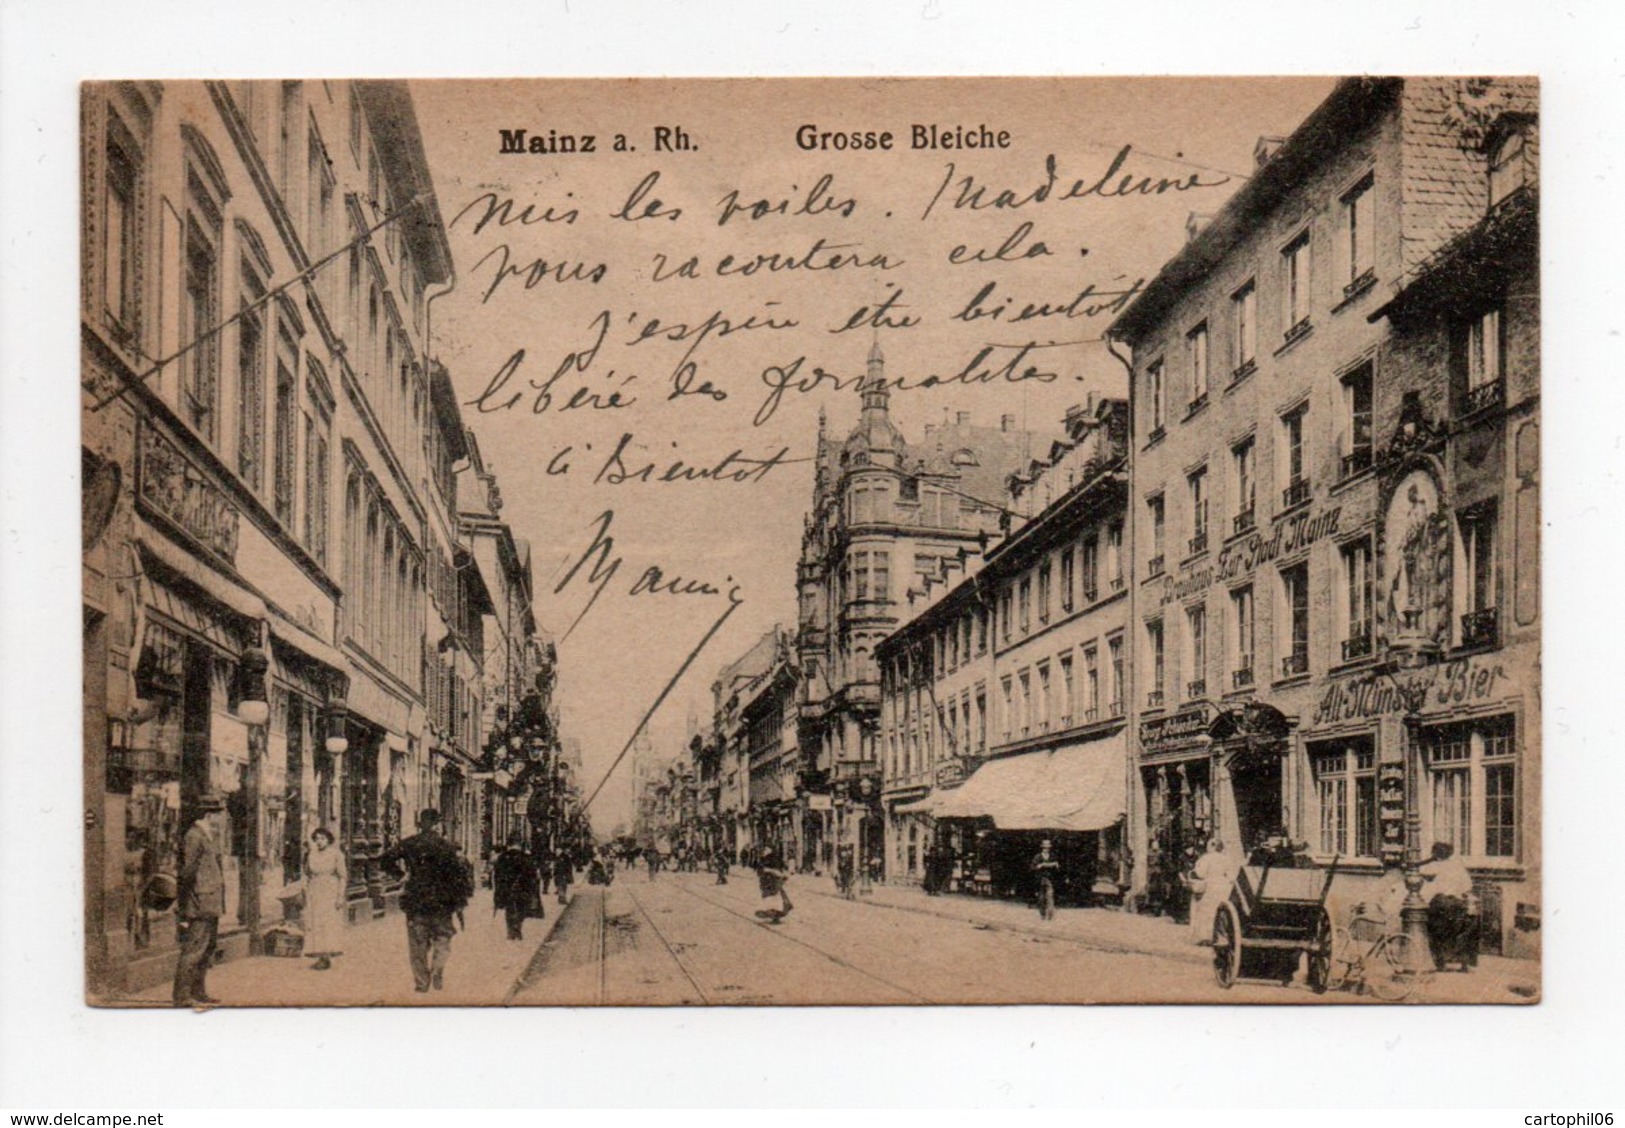 Mainz a. Rh. Grosse Bleiche
mis les voiles. Madeleine
vous racontera cela.
j'espère être bientôt
libéré des formalités.
à Bientôt
Brauhaus Zur Stadt Mainz
Alt-Münster Bier
www.delcampe.net
cartophil06